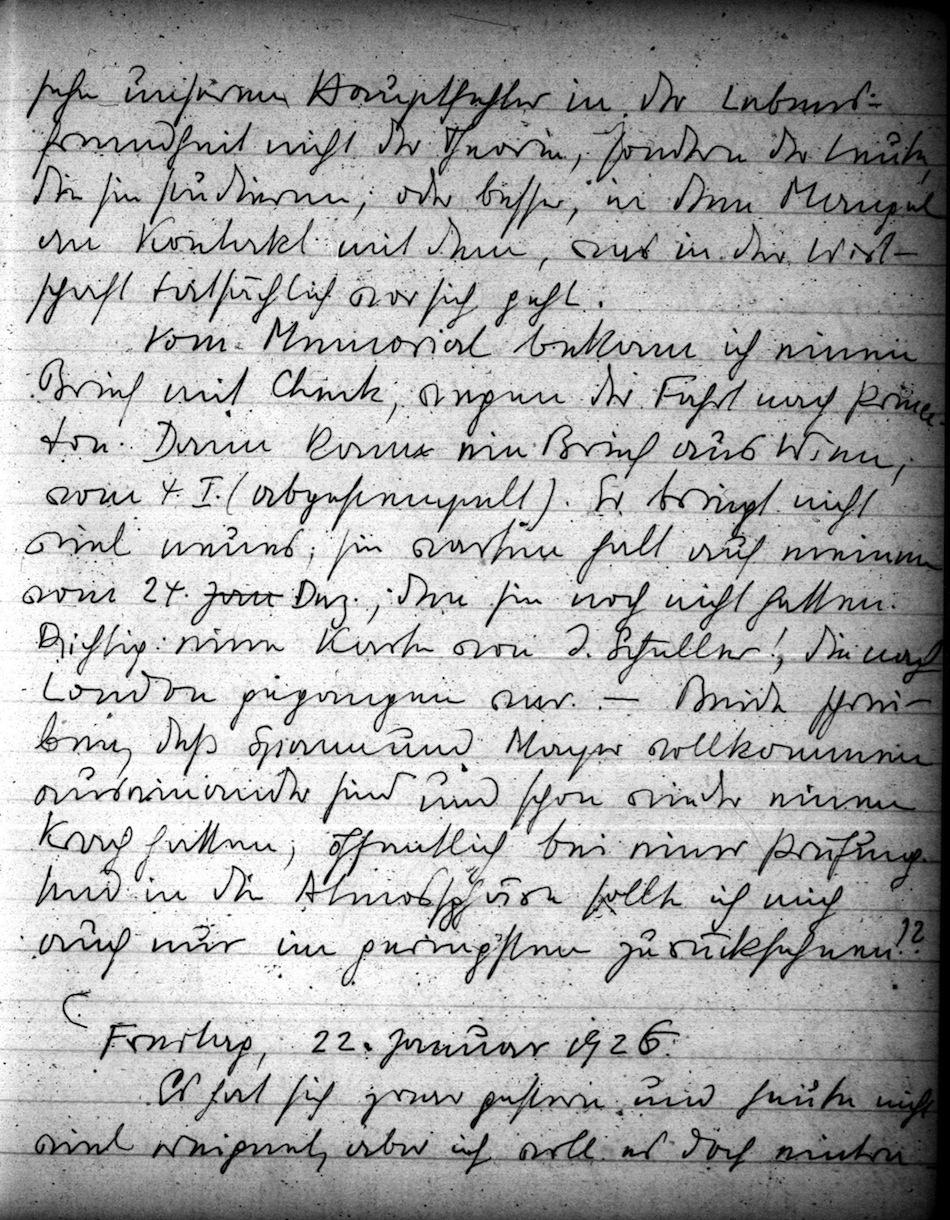 sehe unseren Hauptfehler in der Lebens-
fremdheit nicht der Theorie, sondern der Leute,
die sie studieren; oder besser, in dem Mangel
an Kontakt mit dem, was in der Wirt-
schaft tatsächlich vor sich geht.
Vom Memorial bekam ich einen
Brief mit Check, wegen der Fahrt nach Prince-
ton. Dann kam ein Brief aus Wien,
vom 4. I. (abgestempelt). Er bringt nicht
viel neues; sie warten halt auf meinen
vom 24. Jan Dez., den sie noch nicht hatten.
Richtig: eine Karte von J. Schuller!, die nach
London gegangen war. — Beide schrei-
ben, daß Spann und Mayer vollkommen
auseinander sind und schon wieder einen
Krach hatten, öffentlich bei einer Prüfung.
Und in die Atmosphäre sollte ich mich
auch nur im geringsten zurücksehnen!?
Freitag, 22. Januar 1926.
Es hat sich zwar gestern und heute nicht
viel ereignet, aber ich will es doch eintra-